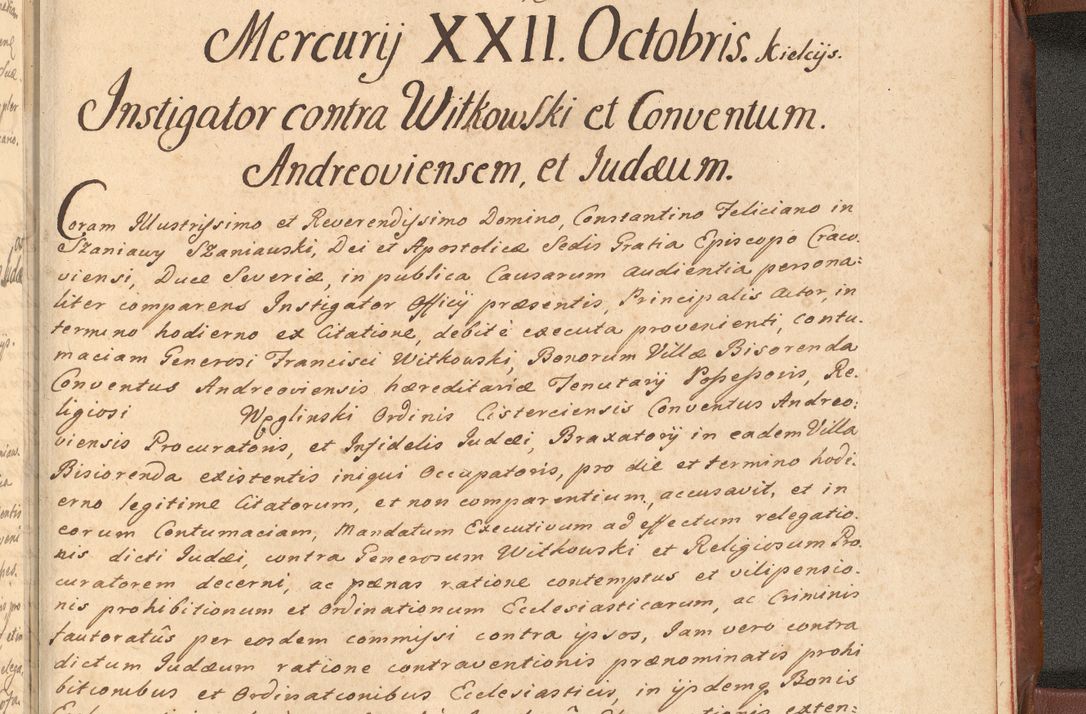 Mercurij XXII. Octobris. Kielcijs.
Instigator contra Witkowski et Conventum.
Andreoviensem, et Iudæum.
Coram Illustrissimo et Reverendissimo Domino, Constantino Feliciano in
Szaniawy Szaniawski, Dei et Apostolicæ Sedis Gratia Episcopo Craco-
viensi, Duce Severiæ, in publica Causarum audientia persona:
liter comparens Instigator Officij præsentis, Principalis Actor, in
termino hodierno ex Citatione, debitè executa provenienti, contu-
maciam Generosi Francisci Witkowski, Bonorum Villæ Bisorenda
Conventus Andreoviensis hæreditariæ Tenutarij Possessoris, Re-
ligiosi Węglinski Ordinis Cisterciensis Conventus Andreo:
viensis Procuratoris, et Infidelis Iudæi, Braxatorij in eadem Villa
Bisiorenda existentis iniqui Occupatoris, pro die et termino hodi-
erno legitime Citatorum, et non comparentium, accusavit, et in
eorum Contumaciam, Mandatum Executivum ad effectum relegatio-
nis dicti Iudæi, contra Generosum Witkowski et Religiosum Pro-
curatorem decerni, ac pænas ratione contemptus et vilipensio-
nis prohibitionum et Ordinationum Ecclesiasticarum, ac Criminis
fautoratûs per eosdem commissi contra ipsos, Iam vero contra
dictum Iudæum ratione contraventionis prænominatis prohi
bitionibus et Ordinationibus Ecclesiasticis, in ijsdemq Bonis